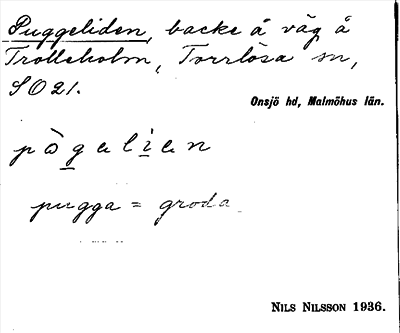 Puggeliden, backe å väg å
Trolleholm, Torrlösa sn,
SO21.
Onsjö hd, Malmöhus län.
pògelien
pugga = groda
NILS NILSSON 1936.